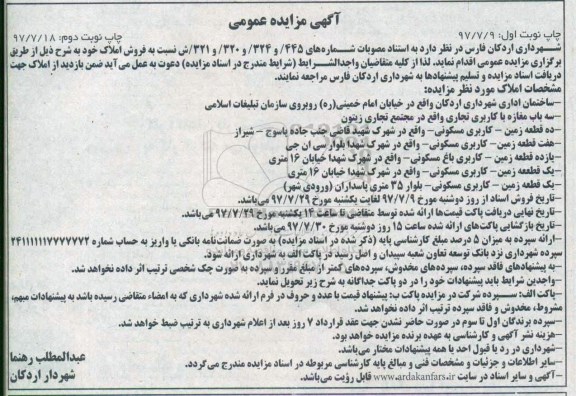 آگهی مزایده عمومی
چاپ نوبت اول: ۹۷/۷/۹
چاپ نوبت دوم: ۹۷/۷/۱۸
شهرداری اردکان فارس در نظر دارد به استناد مصوبات شماره‌های ۴۴۵/ و ۳۲۴/ و ۳۲۰/ و ۳۲۱/ش نسبت به فروش املاک خود به شرح ذیل از طریق
برگزاری مزایده عمومی اقدام نماید. لذا از کلیه متقاضیان واجدالشرایط (شرایط مندرج در اسناد مزایده) دعوت به عمل می‌آید ضمن بازدید از املاک جهت
دریافت اسناد مزایده و تسلیم پیشنهادها به شهرداری اردکان فارس مراجعه نمایند.
مشخصات املاک مورد نظر مزایده:
–ساختمان اداری شهرداری اردکان واقع در خیابان امام خمینی(ره) روبروی سازمان تبلیغات اسلامی
–سه باب مغازه با کاربری تجاری واقع در مجتمع تجاری زیتون
–ده قطعه زمین – کاربری مسکونی– واقع در شهرک شهید قاضی جنب جاده یاسوج – شیراز
–هفت قطعه زمین – کاربری مسکونی– واقع در شهرک شهدا بلوار سی ان جی
–یازده قطعه زمین – کاربری باغ مسکونی– واقع در شهرک شهدا خیابان ۱۶ متری
–یک قطعه زمین – کاربری مسکونی– واقع در شهرک شهدا خیابان ۱۶ متری
–یک قطعه زمین – کاربری مسکونی– بلوار ۳۵ متری پاسداران (ورودی شهر)
–تاریخ فروش اسناد از روز دوشنبه مورخ ۹۷/۷/۹ لغایت یکشنبه مورخ ۹۷/۷/۲۹ می‌باشد.
–تاریخ نهایی دریافت پاکت قیمت‌ها ارائه شده توسط متقاضی تا ساعت ۱۴ یکشنبه مورخ ۹۷/۷/۲۹ می‌باشد.
–تاریخ بازگشایی پاکت‌های ارائه شده ساعت ۱۵ روز دوشنبه مورخ ۹۷/۷/۳۰ می‌باشد.
–ارائه سپرده به میزان ۵ درصد مبلغ کارشناسی پایه (ذکر شده در اسناد مزایده) به صورت ضمانت‌نامه بانکی یا واریز به حساب شماره
سپرده شهرداری نزد بانک توسعه تعاون شعبه سپیدان و اصل رسید در پاکت الف به شهرداری ارائه شود.
–به پیشنهادهای فاقد سپرده، سپرده‌های مخدوش، سپرده‌های کمتر از مبلغ مقرر و سپرده به صورت چک شخصی ترتیب اثر داده نخواهد شد.
–واجدین شرایط باید پیشنهادات خود را در دو پاکت جداگانه به شرح زیر تحویل نماید.
–پاکت الف: سپرده شرکت در مزایده پاکت ب: پیشنهاد قیمت با عدد و حروف در فرم ارائه شده شهرداری که به امضاء متقاضی رسیده باشد به پیشنهادات مبهم،
مشروط، مخدوش و فاقد سپرده ترتیب اثر داده نخواهد شد.
–سپرده برندگان اول تا سوم در صورت حاضر نشدن جهت عقد قرارداد ۷ روز بعد از اعلام شهرداری به ترتیب ضبط خواهد شد.
–هزینه نشر آگهی و کارشناسی به عهده برنده مزایده خواهد بود.
–شهرداری در رد یا قبول احد یا همه پیشنهادات مختار می‌باشد.
–سایر اطلاعات و جزئیات و مشخصات فنی و مبالغ پایه کارشناسی مربوطه در اسناد مزایده مندرج می‌گردد.
–آگهی و سایر اسناد در سایت www.ardakanfars.ir قابل رؤیت می‌باشد.
عبدالمطلب رهنما
شهردار اردکان